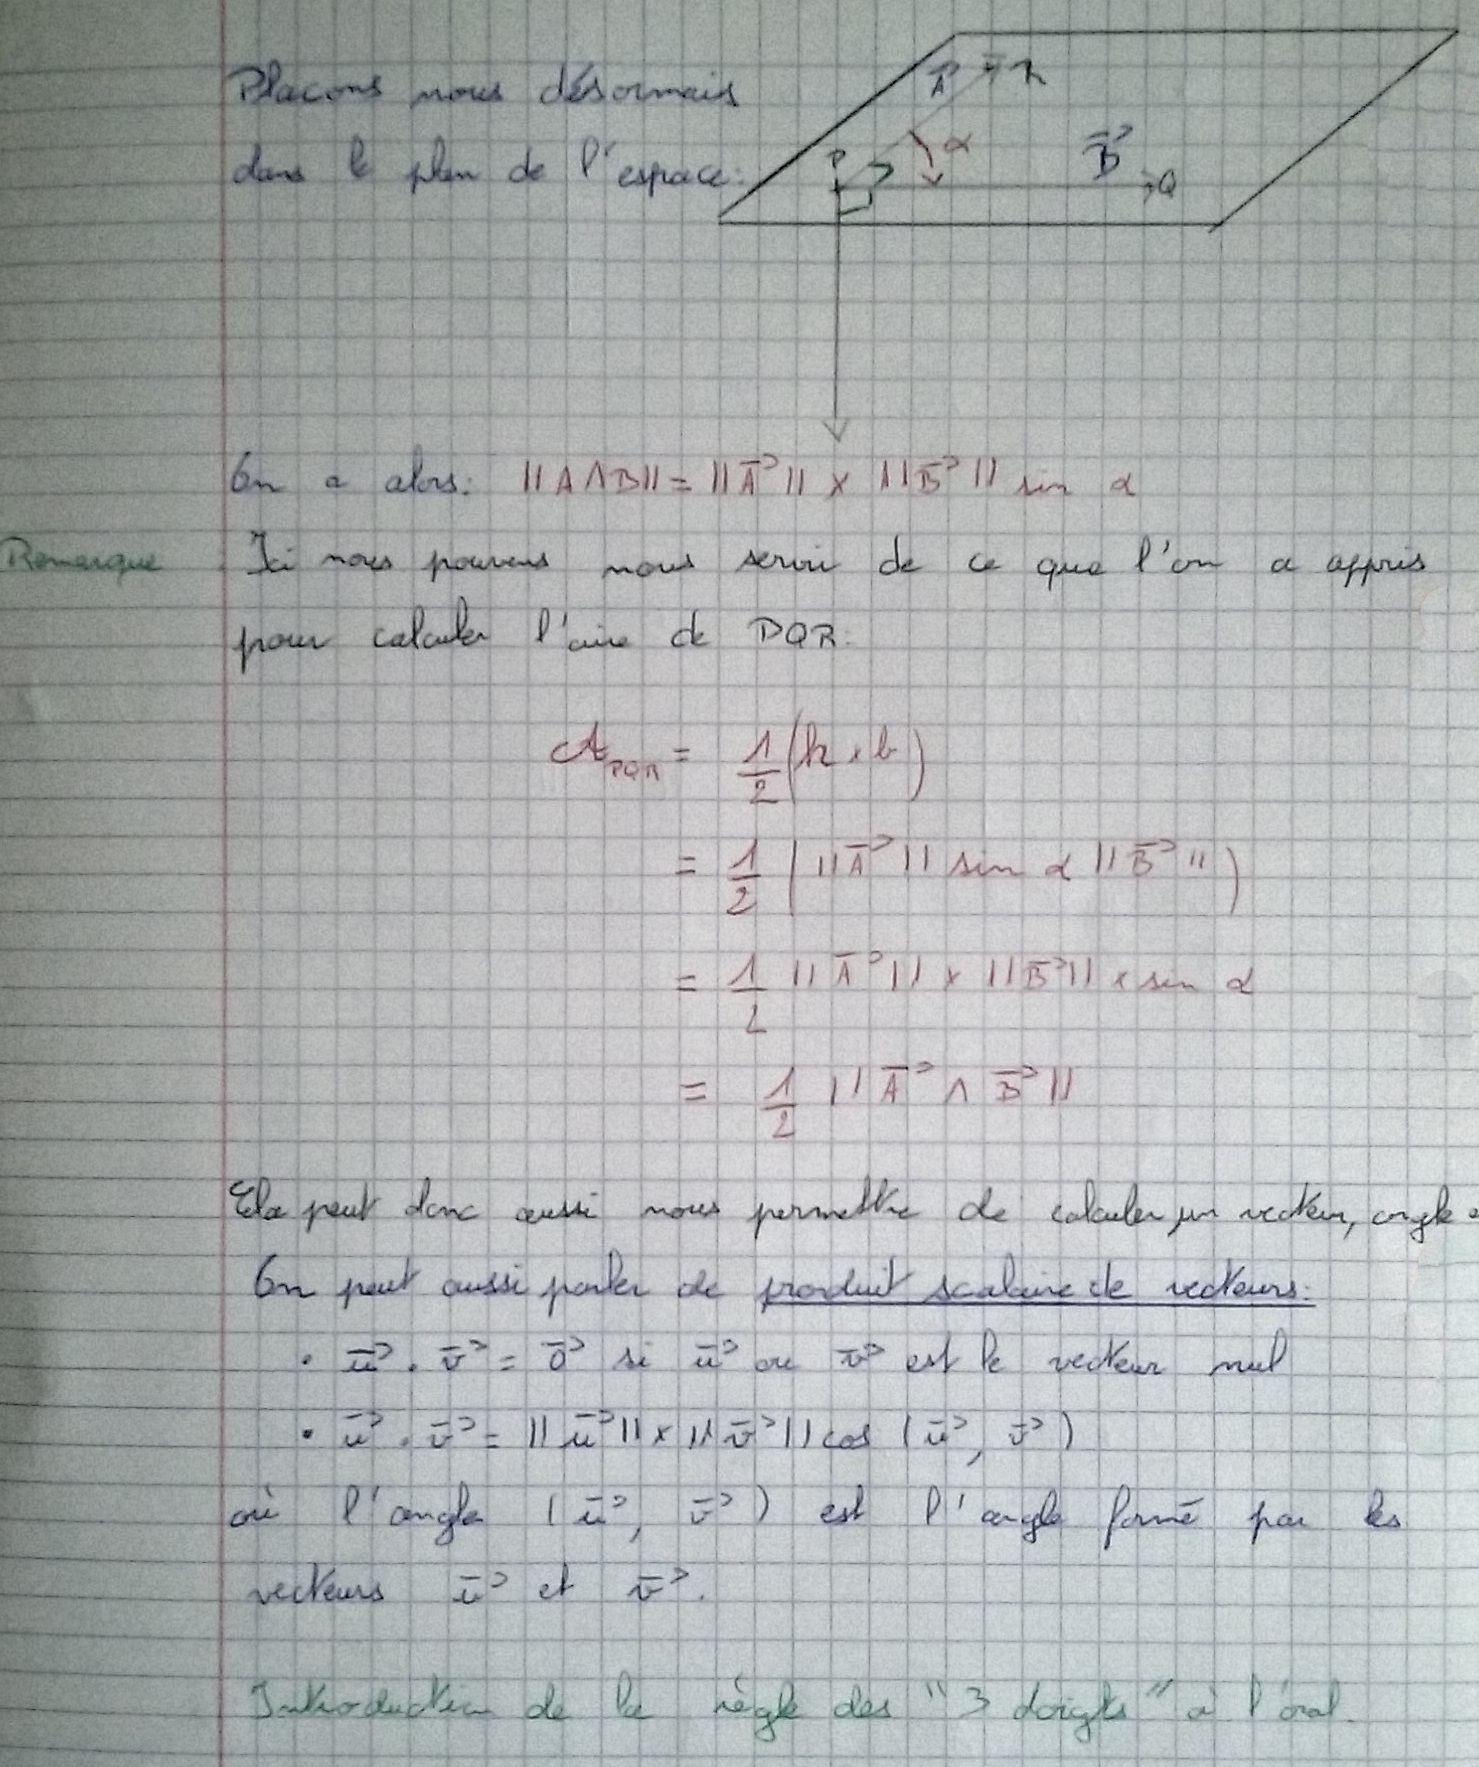 Placons nous désormais
dans le plan de l'espace:
A⃗ R
P α B⃗ Q
On a alors: ||A∧B|| = ||A⃗|| x ||B⃗|| sin α
Remarque : Ici nous pouvons nous servir de ce que l'on a appris
pour calculer l'aire de PQR:
A_PQR = 1/2 (h x b)
= 1/2 (||A⃗|| sin α ||B⃗||)
= 1/2 ||A⃗|| x ||B⃗|| x sin α
= 1/2 ||A⃗ ∧ B⃗||
Ela peut donc aussi nous permettre de calculer un vecteur, angle
On peut aussi parler de produit scalaire de vecteurs:
• u⃗ . v⃗ = 0⃗ si u⃗ ou v⃗ est le vecteur nul
• u⃗ . v⃗ = ||u⃗|| x ||v⃗|| cos (u⃗, v⃗)
où l'angle (u⃗, v⃗) est l'angle formé par les
vecteurs u⃗ et v⃗.
Introduction de la règle des "3 doigts" à l'oral.